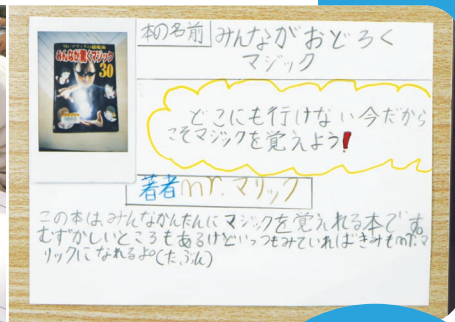 Mr.マリックの超魔術
みんなが驚くマジック
30
本の名前 みんながおどろく
マジック
どこにも行けない今だから
こそマジックを覚えよう!
著者mr.マリック
この本は、みんなかんたんにマジックを覚えれる本です。
むずかしいところもあるけどいっつもみていればきみもmr.マ
リックになれるよ。(たぶん)